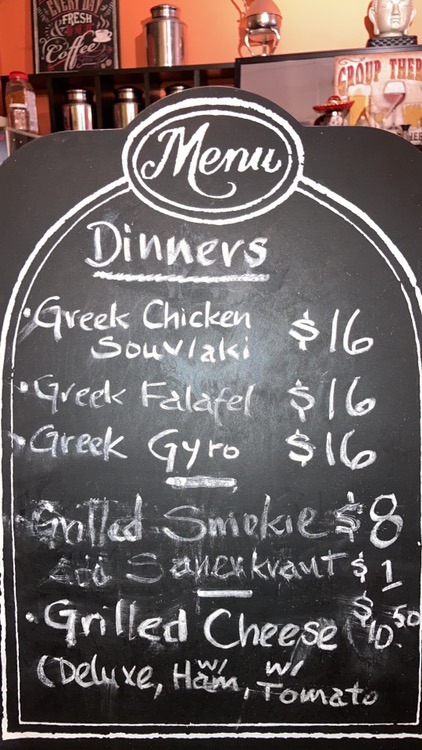 EVERY DAY
FRESH
Coffee
GROUP THER
Menu
Dinners
• Greek Chicken Souvlaki $16
• Greek Falafel $16
• Greek Gyro $16
Grilled Smokie $8
Add Sauerkraut $1
• Grilled Cheese $10.50
(Deluxe, w/ Ham, w/ Tomato